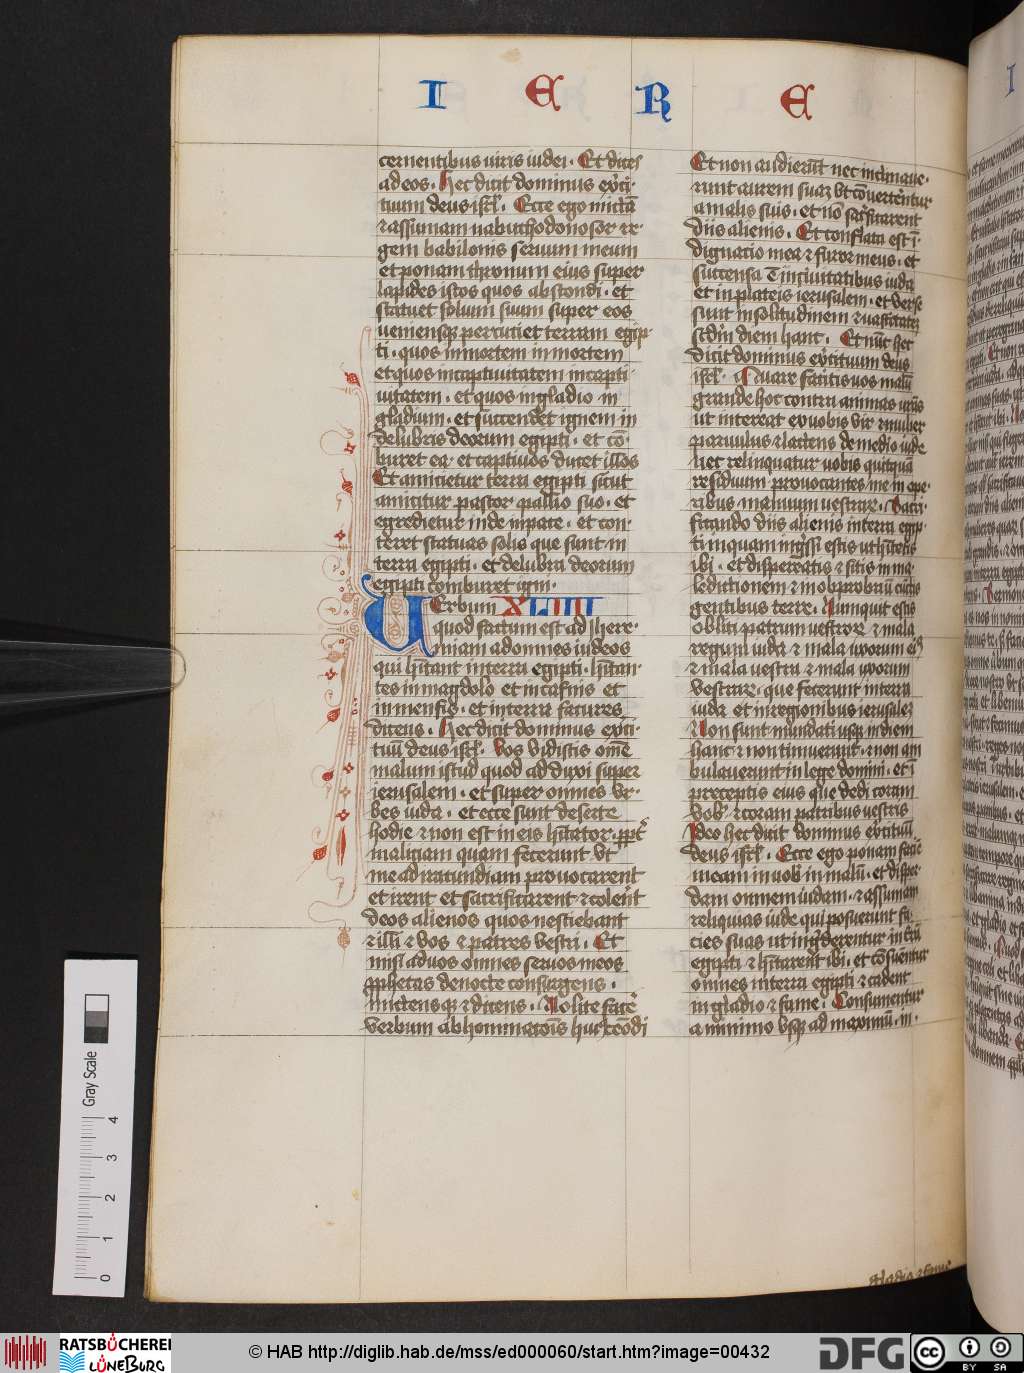 I E R E
cernentibus uiris iudei · Et dices
ad eos · Hec dicit dominus ex̾ci
tuum deus isrl̾ · Ecce ego mictā
⁊ assumam nabuchodonosor re
gem babilonis seruum meum
et ponam thronum eius super
lapides istos quos abscondi · et
statuet solium suum super eos
ueniensqꝫ percutiet terram egip
ti · quos in mortem in mortem
et quos in captiuitatem in capti
uitatem · et quos in gladio in
gladium · et succendet ignem in
delubris deorum egipti · et cō
buret ea · et captiuos ducet illos
Et amicietur terra egipti sicut
amicitur pastor pallio suo · et
egredietur inde in pace · et con
teret statuas solis que sunt in
terra egipti · et delubra deorum
egipti comburet igni ·
Uerbum XLIIII
quod factum est ad Ihere
miam ad omnes iudeos
qui hītant in terra egipti · hītan
tes in magdolo et in tafnis et
in menfis · et in terra fatures
dicens · Hec dicit dominus ex̾ci
tuū deus isrl̾ · Vos vidistis om̄e
malum istud quod adduxi super
ierusalem · et super omnes vr
bes iuda · et ecce sunt deserte
hodie ⁊ non est in eis hītator · ꝓpt̾
maliciam quam fecerunt vt
me ad iracundiam prouocarent
et irent et sacrificarent ⁊ coler̄t
deos alienos quos nesciebant
⁊ illi ⁊ vos ⁊ patres vestri · Et
misi ad uos omnes seruos meos
ꝓphetas de nocte consurgens ·
mictensqꝫ ⁊ dicens · Nolite fac̾e
verbum abhominac̄ois huic̾cēodi
Et non audierūt nec inclinaue
runt aurem suam vt cōuerterēntur
a malis suis · et nō sac̾ficarent
diis alienis · Et conflata est ī
dignatio mea ⁊ furor meus · et
succensa ē in ciuitatibus iuda
et in plateis ierusalem · et verse
sunt in solitudinem ⁊ vastitatē
scdm̄ diem hanc · Et nūc hec
dicit dominus exercituum deus
isrl̾ · Quare facitis vos malū
grande hoc contra animas vr̄as
ut intereat ex uobis vir ⁊ mulier
paruulus ⁊ lactens de medio iude
nec relinquatur uobis quitquā
residuum prouocantes me in ope
ribus manuum vestrarꝫ · Sacri
ficando diis alienis in terra egip
ti in quam ingr̄ssi estis ut hītetis
ibi · et dispereatis ⁊ sitis in ma
ledictionem ⁊ in obprobriū cūctis
gentibus terre · Nunquit estis
obliti patrum vestrorꝫ ⁊ mala
regum iuda ⁊ mala vxorum eiꝰ
⁊ mala vestra ⁊ mala vxorum
vestrarꝫ · que fecerunt in terra
iuda et in regionibus ierusalem
Non sunt mundati usqꝫ in diem
hanc ⁊ non timuerunt · ⁊ non am
bulauerunt in lege domini · et ī
preceptis eius que dedi coram
vobꝭ ⁊ coram patribus vestris
Ideo hec dicit dominus ex̾cituū
deus isrl̾ · Ecce ego ponam faciē
meam in uobꝭ in malū · et disper
dam omnem iudam · ⁊ assumam
reliquias iude qui posuerunt fa
cies suas ut ing̾derentur in t̾rā
egipti ⁊ hītarent ibi · et cōsuentur
omnes in terra egipti ⁊ cadent
in gladio ⁊ fame · Consumentur
a minimo vsqꝫ ad maximū · in
gladio ⁊ fame
Gray Scale
0 1 2 3 4
RATSBÜCHEREI
LÜNEBURG
© HAB http://diglib.hab.de/mss/ed000060/start.htm?image=00432
DFG
cc BY SA